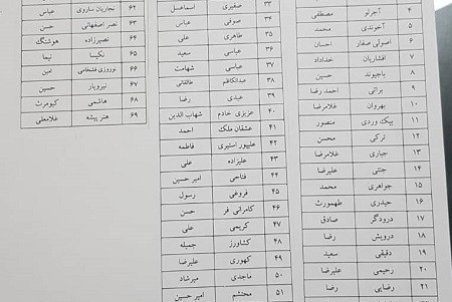 ۴ آجرلو مصطفی
۵ آخوندی محمد
۶ اصولی صفار احسان
۷ افشاریان خداداد
۸ باجیوند حسین
۹ براتی احمد رضا
۱۰ بهروان غلامرضا
۱۱ بیک وردی منصور
۱۲ ترکی محسن
۱۳ جباری غلامرضا
۱۴ جنتی علیرضا
۱۵ جواهری محمد
۱۶ حیدری طهمورث
۱۷ درودگر صادق
۱۸ درویش رضا
۱۹ دقیقی سعید
۲۰ رحیمی علیرضا
۲۱ رضایی رضا
۳۳ صغیری اسماعیل
۳۴ صوفی عباس
۳۵ طاهری علی
۳۶ عباسی سعید
۳۷ عباسی شهامت
۳۸ عبدالکاظم طالقانی
۳۹ عبدی رضا
۴۰ عزیزی خادم شهاب الدین
۴۱ عشقان ملک احمد
۴۲ علیپور استیری فاطمه
۴۳ علیزاده علی
۴۴ فتاحی امیر حسین
۴۵ فروغی رسول
۴۶ کامرانی فر حسن
۴۷ کریمی علی
۴۸ کشاورز جمیله
۴۹ کهوری علیرضا
۵۰ ماجدی میرشاد
۵۱ محتشم امیر حسین
۶۲ نجاریان ساروی عباس
۶۳ نصر اصفهانی حسن
۶۴ نصیرزاده هوشنگ
۶۵ نکیسا نیما
۶۶ نوروزی امین
۶۷ نیرویار حسین
۶۸ هاشمی کیومرث
۶۹ هنر پیشه غلامعلی